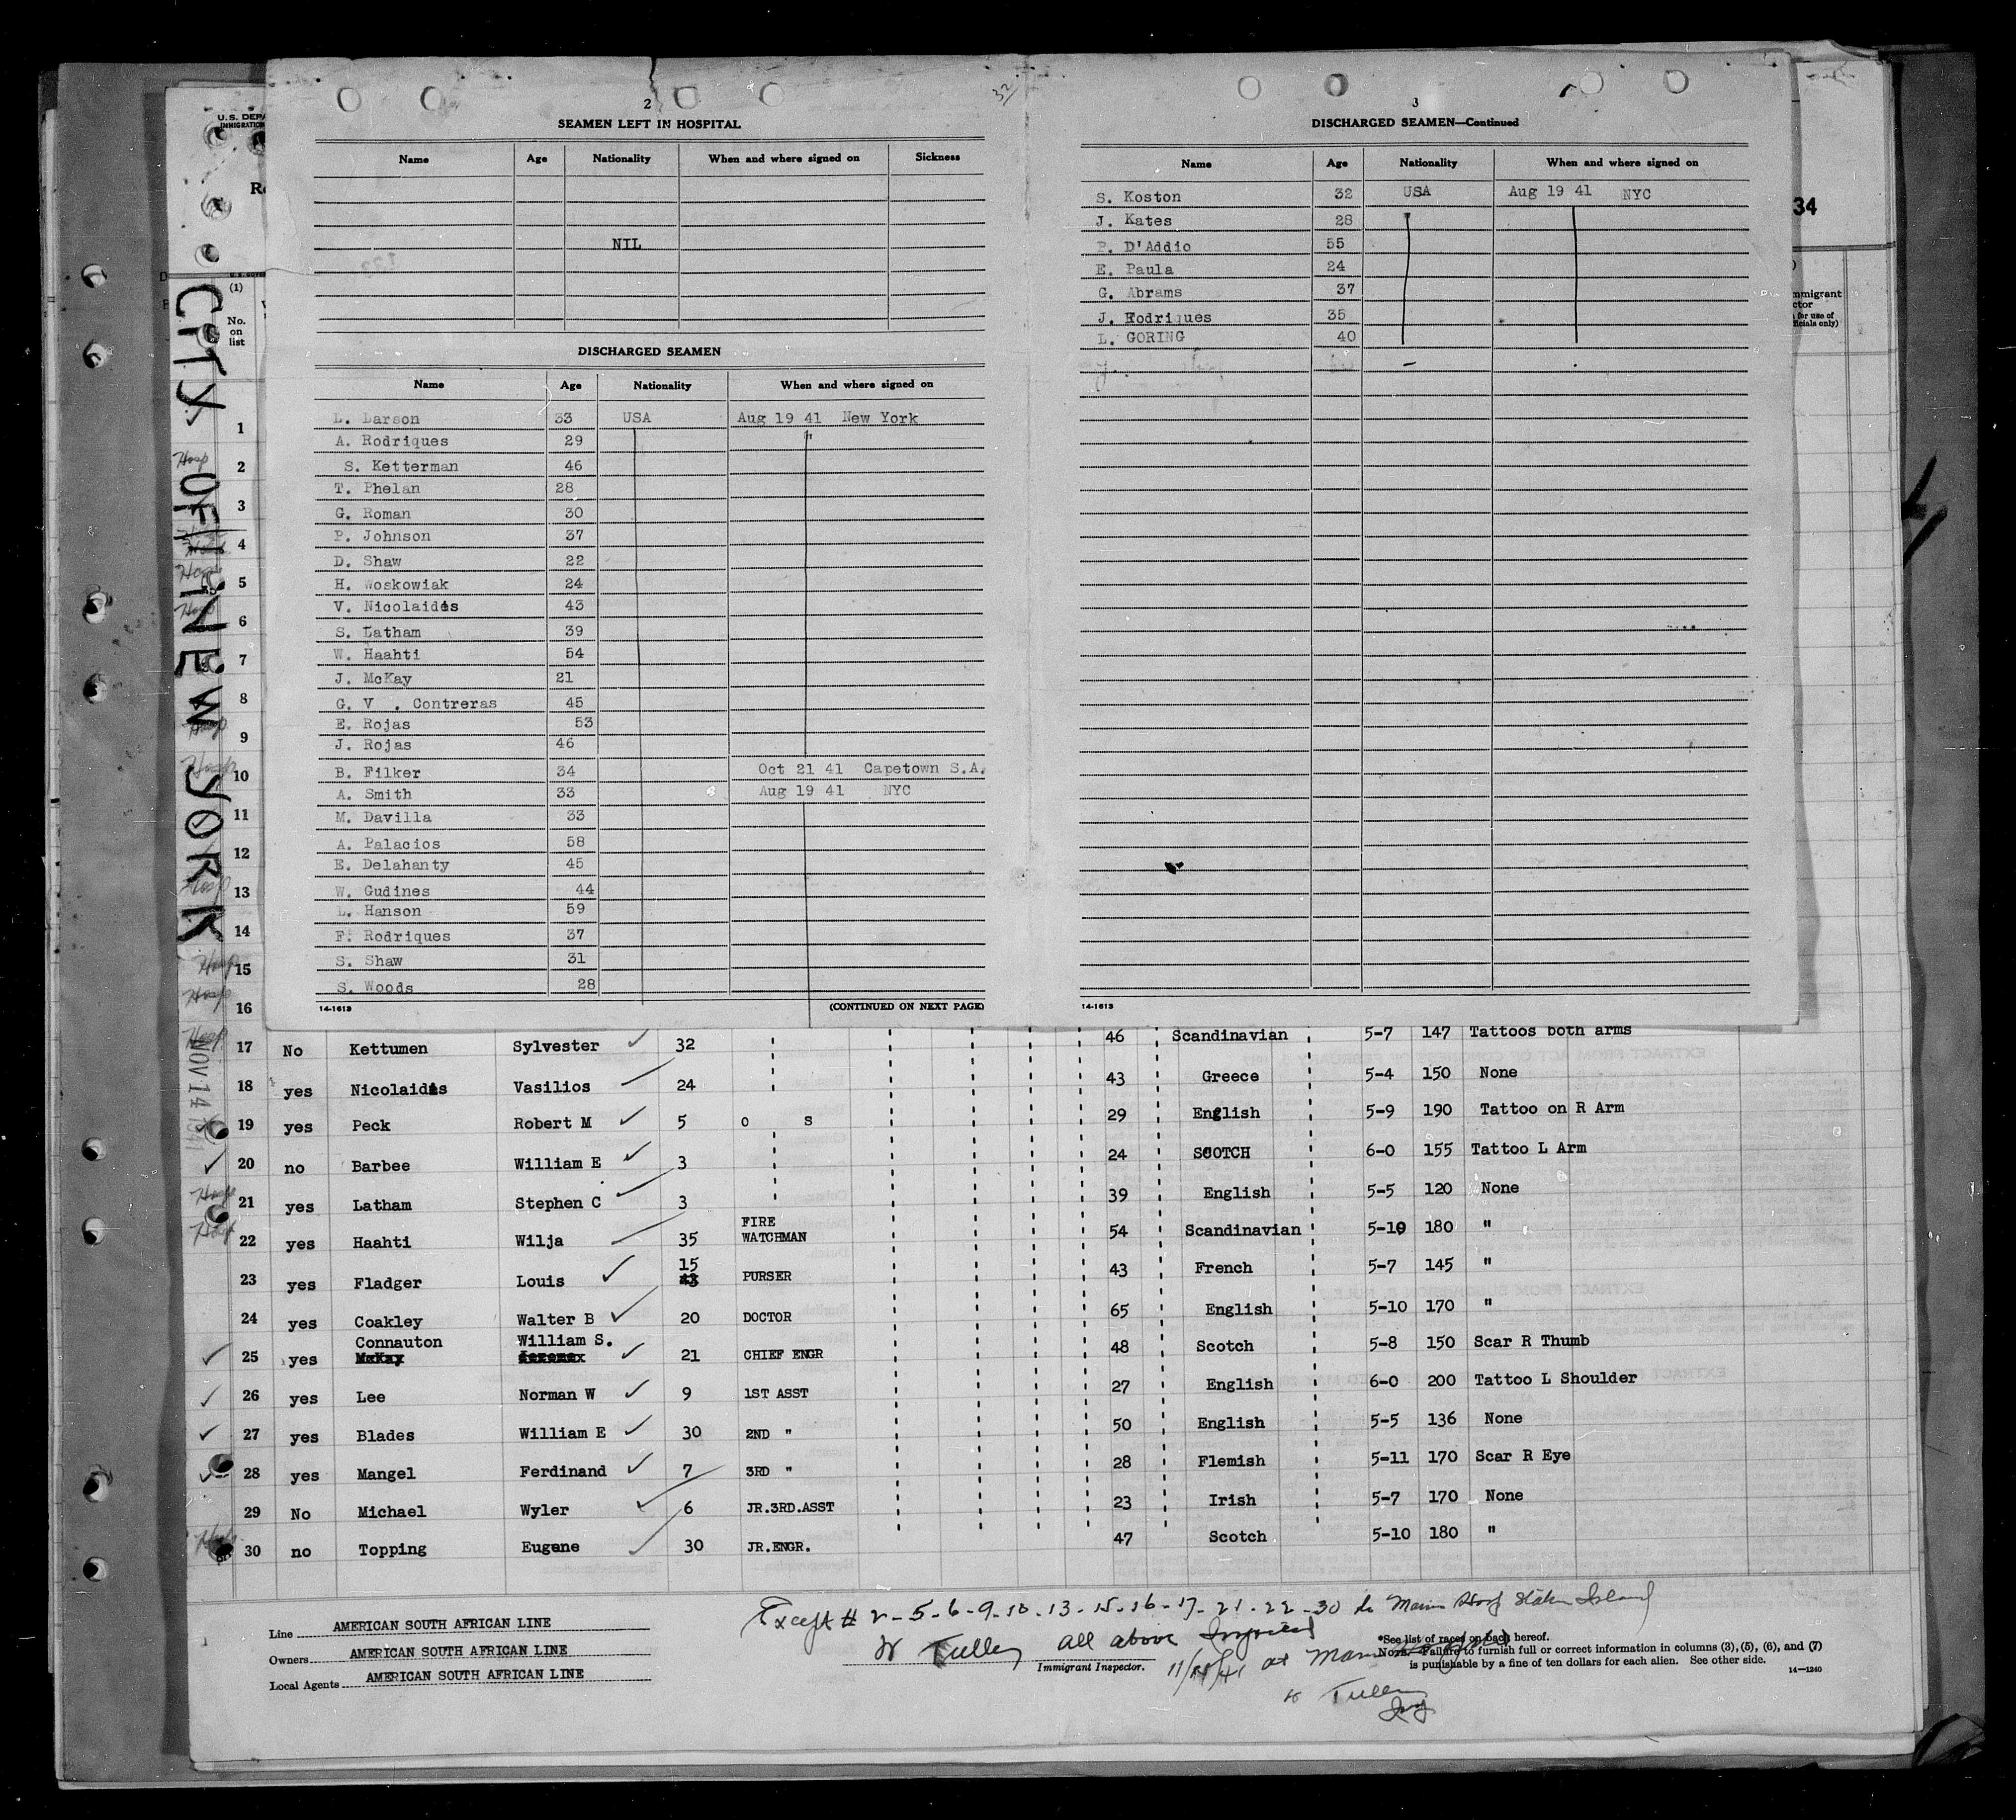 U.S. DEPA
IMMIGRATION
CITY OF NEW YORK
NOV 14 1941
(1)
No.
on
list
34
mmigrant
ctor
for use of
ficials only)
2
SEAMEN LEFT IN HOSPITAL
Name Age Nationality When and where signed on Sickness
NIL
DISCHARGED SEAMEN
Name Age Nationality When and where signed on
L. Larson 33 USA Aug 19 41 New York
A. Rodriques 29 "
S. Ketterman 46
T. Phelan 28
G. Roman 30
P. Johnson 37
D. Shaw 22
H. Woskowiak 24
V. Nicolaides 43
S. Latham 39
W. Haahti 54
J. McKay 21
G. V . Contreras 45
E. Rojas 53
J. Rojas 46
B. Filker 34 Oct 21 41 Capetown S.A.
A. Smith 33 Aug 19 41 NYC
M. Davilla 33
A. Palacios 58
E. Delahanty 45
W. Gudines 44
L. Hanson 59
F. Rodriques 37
S. Shaw 31
S. Woods 28
14-1613 (CONTINUED ON NEXT PAGE)
32
3
DISCHARGED SEAMEN—Continued
Name Age Nationality When and where signed on
S. Koston 32 USA Aug 19 41 NYC
J. Kates 28 "
P. D'Addio 55
E. Paula 24
G. Abrams 37
J. Rodriques 35
L. GORING 40
14-1613
1
Hosp 2
3
4
Hosp 5
Hosp 6
7
8
Hosp 9
Hosp 10
11
12
Hosp 13
14
Hosp 15
Hosp 16
Hosp 17 No Kettumen Sylvester 32 46 Scandinavian 5-7 147 Tattoos both arms
18 yes Nicolaidis Vasilios 24 43 Greece 5-4 150 None
19 yes Peck Robert M 5 O S 29 English 5-9 190 Tattoo on R Arm
20 no Barbee William E 3 24 SCOTCH 6-0 155 Tattoo L Arm
Hosp 21 yes Latham Stephen C 3 39 English 5-5 120 None
Hosp 22 yes Haahti Wilja 35 FIRE WATCHMAN 54 Scandinavian 5-10 180 "
23 yes Fladger Louis 15 43 PURSER 43 French 5-7 145 "
24 yes Coakley Walter B 20 DOCTOR 65 English 5-10 170 "
25 yes Connauton McKay William S. Jerome 21 CHIEF ENGR 48 Scotch 5-8 150 Scar R Thumb
26 yes Lee Norman W 9 1ST ASST 27 English 6-0 200 Tattoo L Shoulder
27 yes Blades William E 30 2ND " 50 English 5-5 136 None
28 yes Mangel Ferdinand 7 3RD " 28 Flemish 5-11 170 Scar R Eye
29 No Michael Wyler 6 JR.3RD.ASST 23 Irish 5-7 170 None
Hosp 30 no Topping Eugene 30 JR.ENGR. 47 Scotch 5-10 180 "
Except # 2-5-6-9-10-13-15-16-17-21-22-30 to Marine Hosp Staten Island
all above
W Tulley
Immigrant Inspector.
Line AMERICAN SOUTH AFRICAN LINE
Owners AMERICAN SOUTH AFRICAN LINE
Local Agents AMERICAN SOUTH AFRICAN LINE
*See list of races on back hereof.
NOTE.—Failure to furnish full or correct information in columns (3), (5), (6), and (7)
is punishable by a fine of ten dollars for each alien. See other side.
14—1240
at Marine
W Tulley
Insp